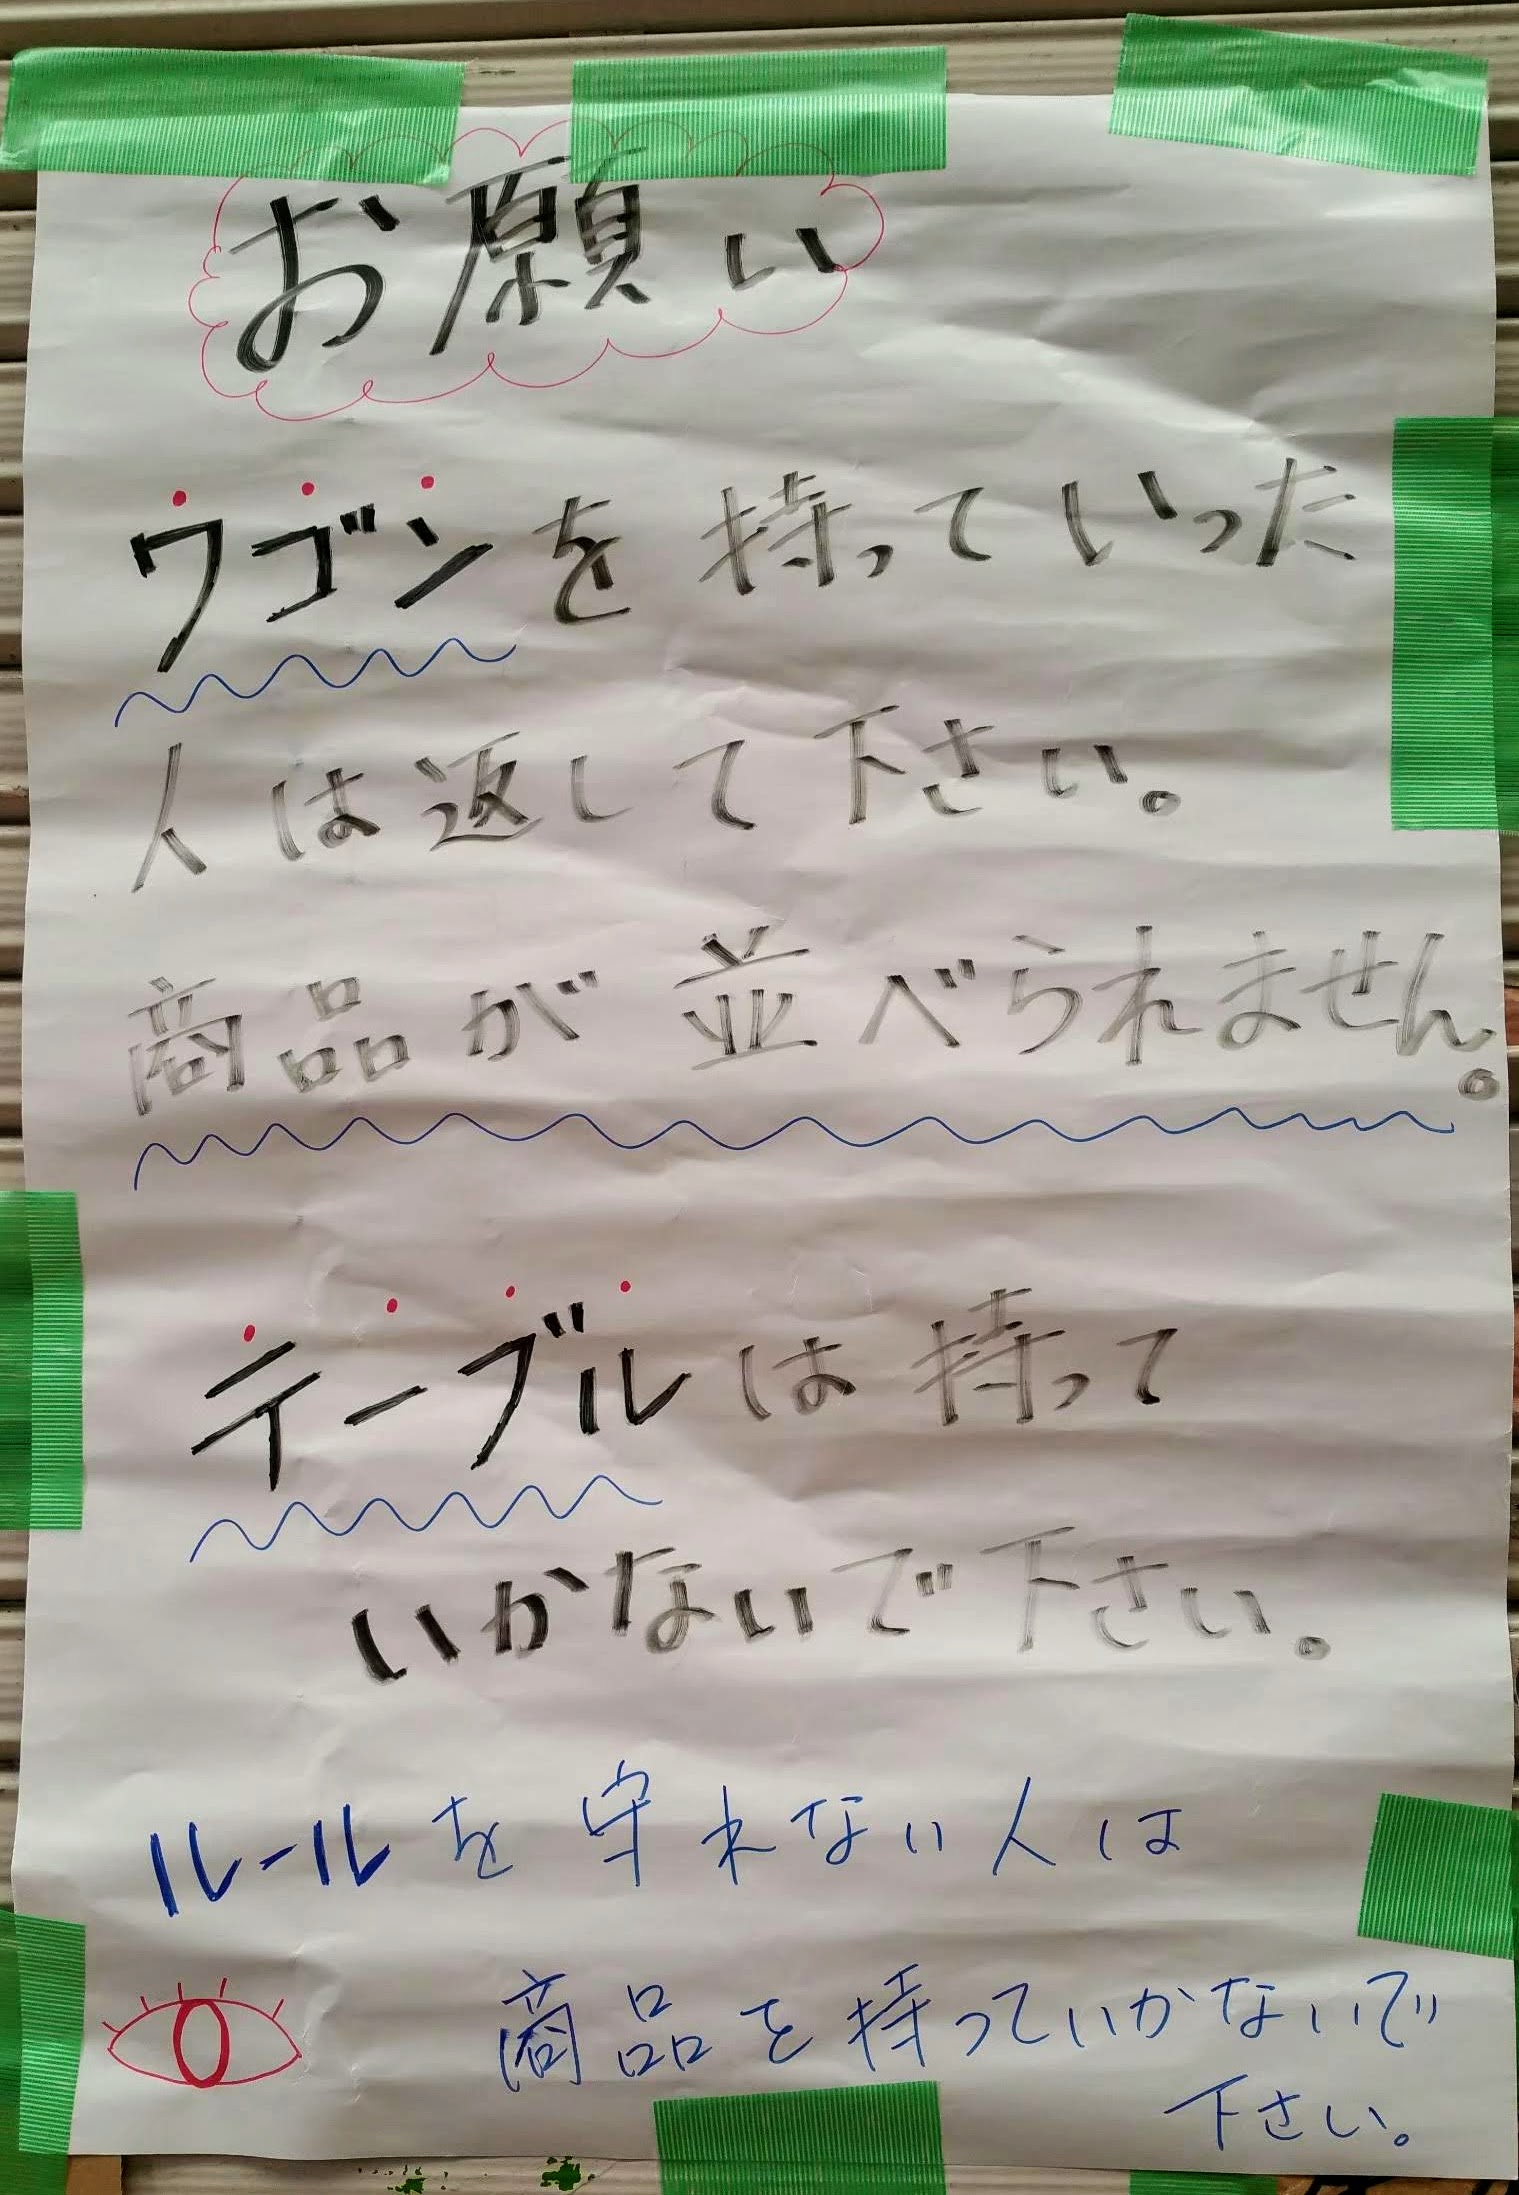 お願い
ワゴンを持っていった
人は返して下さい。
商品が並べられません。
テーブルは持って
いかないで下さい。
ルールを守れない人は
商品を持っていかないで
下さい。